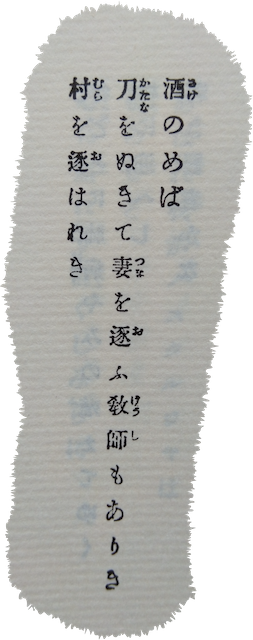 酒のめば
刀をぬきて妻を逐ふ教師もありき
村を逐はれき